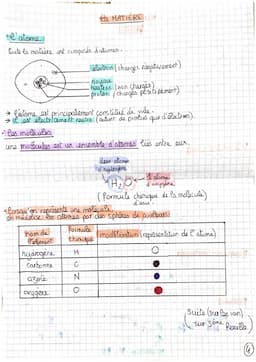 LA MATIÈRE
L'atome.
Toute la matière est composée d'atomes.
électron (chargés négativement)
noyau
neutron (non chargés)
proton (chargés positivement)
→ L'atome est principalement constitué de vide.
→ il est électriquement neutre (autant de protons que d'électrons).
Les molécules
une molécule est un ensemble d'atomes liés entre eux.
deux atomes
d'hydrogène
H₂O
1 atome
d'oxygène
(Formule chimique de la molécule)
d'eau
Lorsqu'on représente une molécule,
on modélise les atomes par des sphères de couleurs
nom de l'atome
Formule chimique
modélisation (représentation de l'atome)
hydrogène H
Carbone C
azote N
oxygène O
suite (sur les ions)
sur 3ème
④